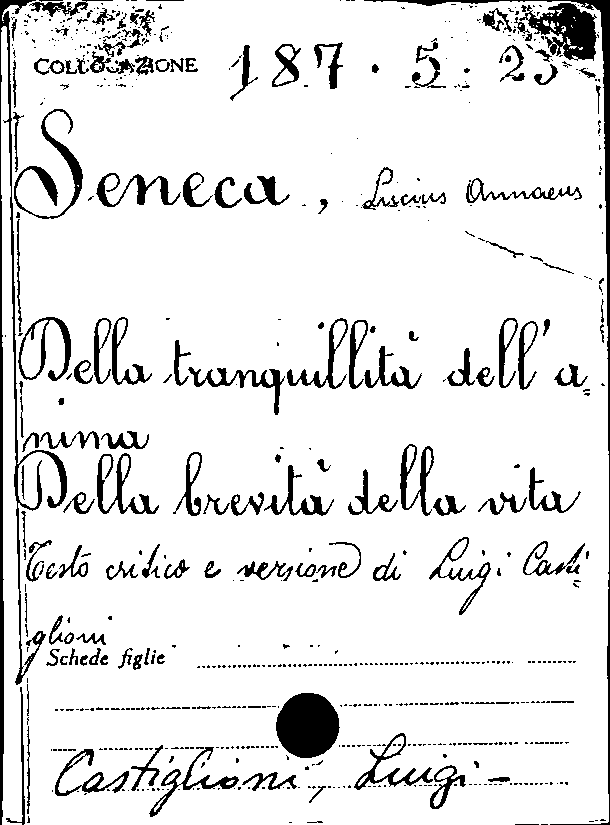 COLLOCAZIONE 187.5.23
Seneca, Luscius Annaeus
Della tranquillità dell'a=
nima
Della brevità della vita
Testo critico e versione di Luigi Casti=
glioni
Schede figlie
Castiglioni, Luigi -